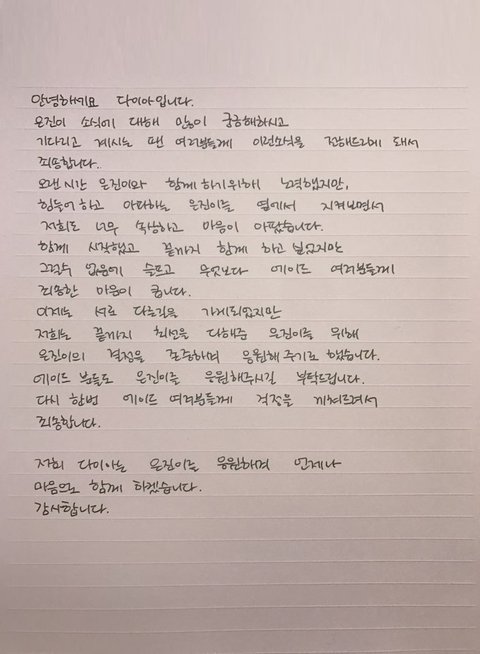 안녕하세요 다이아입니다.
은진이 소식에 대해 많이 궁금해하시고
기다리고 계시는 팬 여러분들께 이런소식을 전해드리게 돼서
죄송합니다.
오랜 시간 은진이와 함께 하기 위해 노력했지만,
힘들어 하고 아파하는 은진이를 옆에서 지켜보면서
저희도 너무 속상하고 마음이 아팠습니다.
함께 시작했고 끝까지 함께 하고 싶었지만
그럴수 없음에 슬프고 무엇보다 에이드 여러분들께
죄송한 마음이 큽니다.
이제는 서로 다른길을 가게되었지만
저희는 끝까지 최선을 다해준 은진이를 위해
은진이의 결정을 존중하며 응원해 주기로 했습니다.
에이드 분들도 은진이를 응원해주시길 부탁드립니다.
다시 한번 에이드 여러분들께 걱정을 끼쳐드려서
죄송합니다.
저희 다이아는 은진이를 응원하며 언제나
마음으로 함께 하겠습니다.
감사합니다.